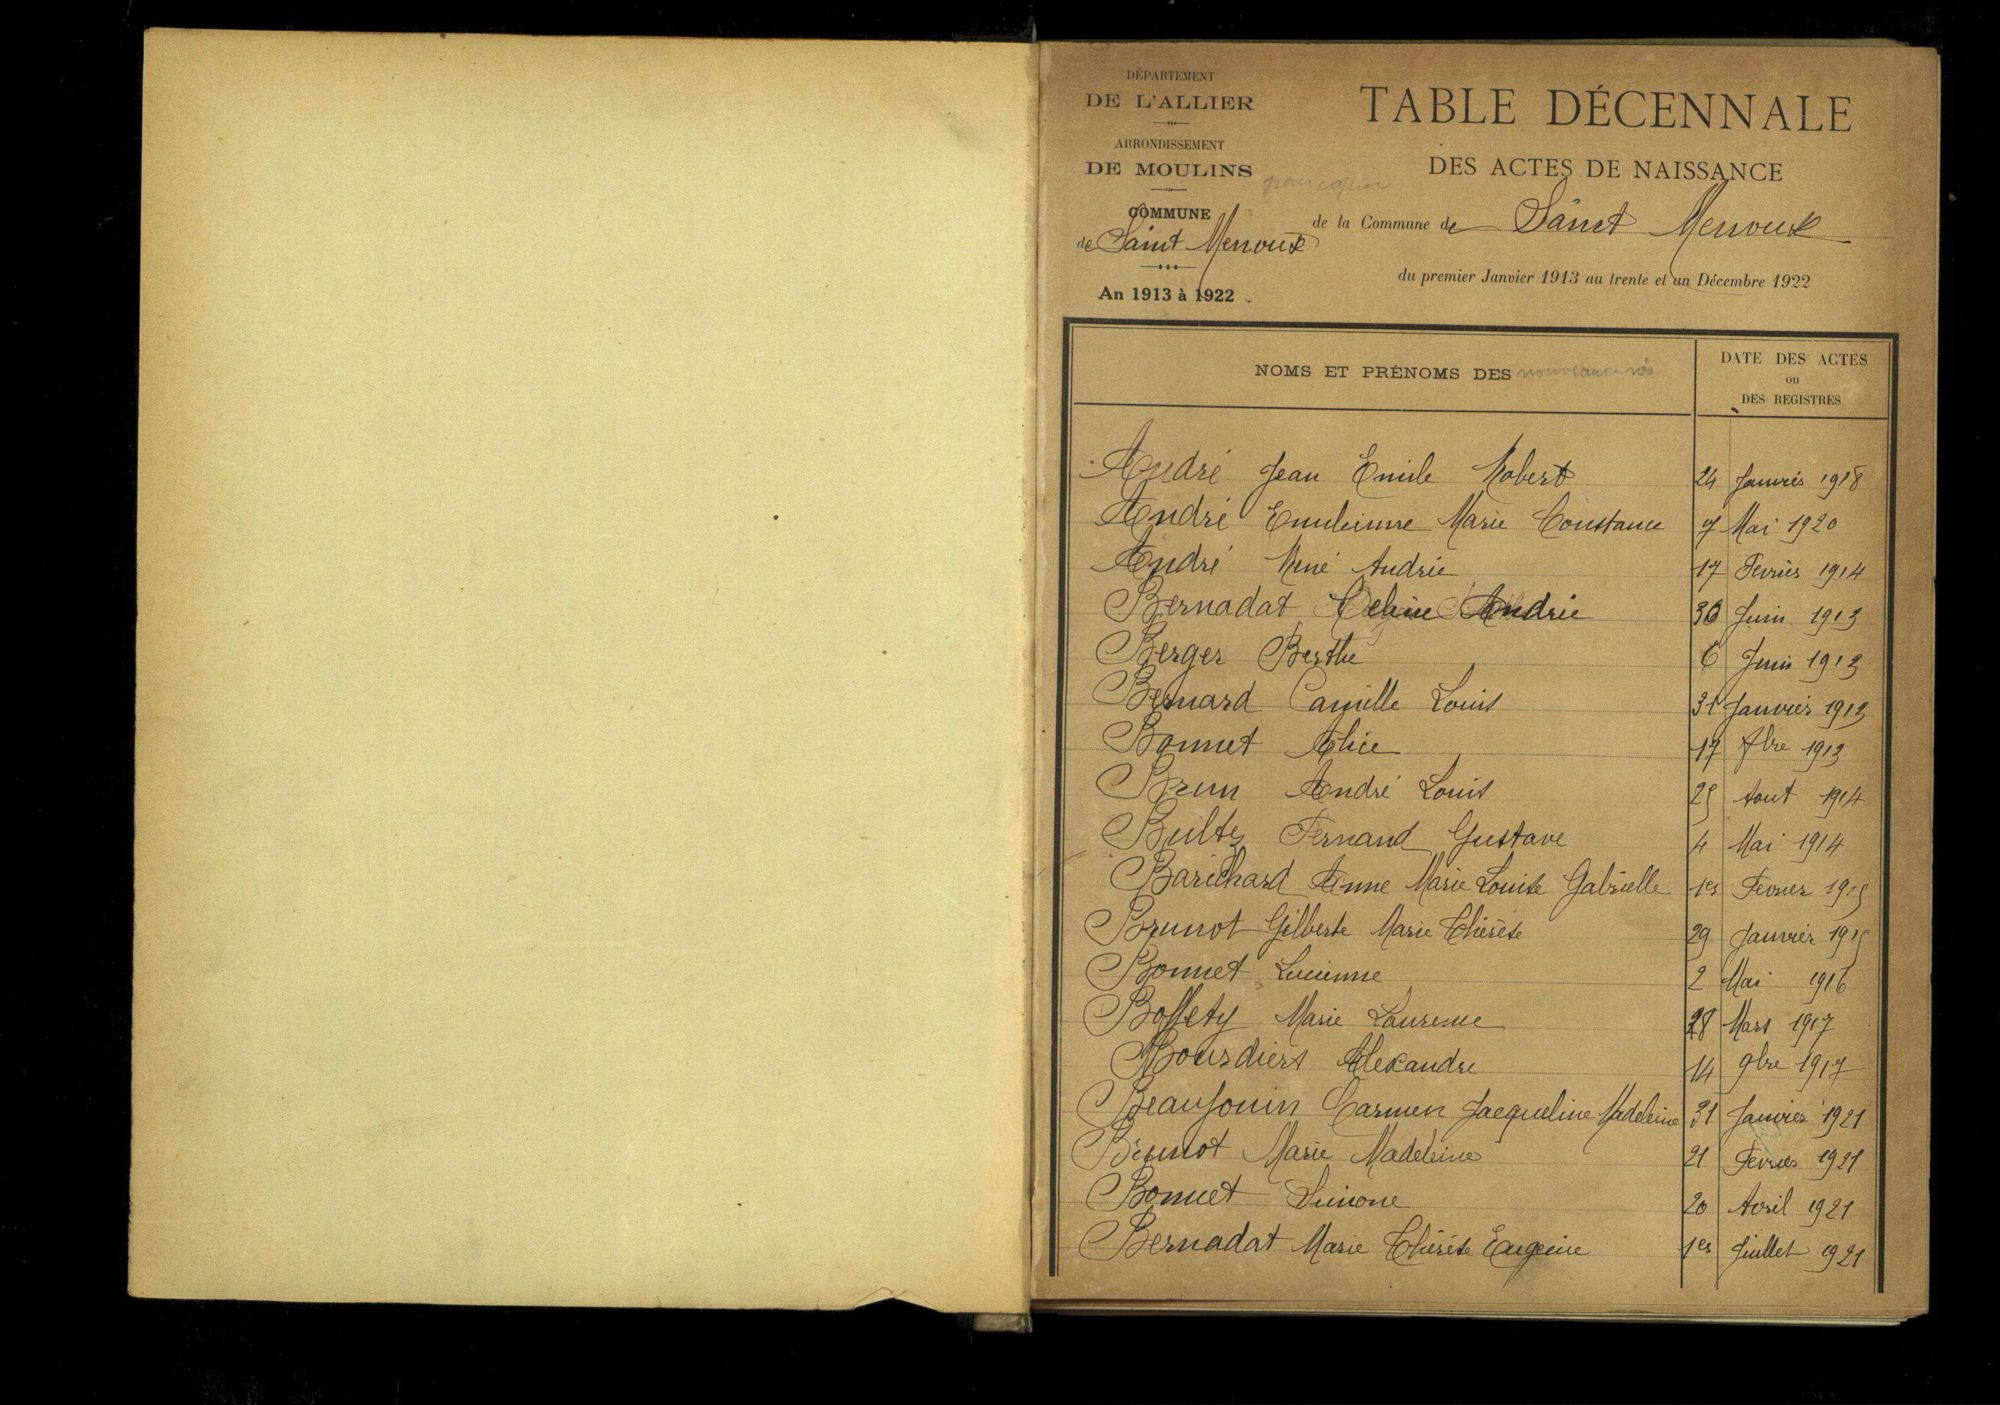 DÉPARTEMENT
DE L'ALLIER
ARRONDISSEMENT
DE MOULINS
COMMUNE
de Saint Menoux
An 1913 à 1922
TABLE DÉCENNALE
DES ACTES DE NAISSANCE
de la Commune de Saint Menoux
du premier Janvier 1913 au trente et un Décembre 1922
NOMS ET PRÉNOMS DES nouveaux-nés
DATE DES ACTES
ou
DES REGISTRES
André Jean Emile Robert 24 Janvier 1918
André Emilienne Marie Constance 7 Mai 1920
André René André 17 Février 1914
Bernadat André 30 Juin 1913
Berger Berthe 6 Juin 1913
Bernard Camille Louis 31 Janvier 1913
Bonnet Alice 17 1913
Brun André Louis 25 Aout 1914
Bultz Fernand Gustave 4 Mai 1914
Barichard Anne Marie Louise Gabrielle 1er Fevrier 1915
Brunot Gilberte Marie Thérèse 29 Janvier 1915
Bonnet Lucienne 2 Mai 1916
Boffety Marie Laurence 28 Mars 1917
Bourdiers Alexandre 14 9bre 1917
Beaujouin Carmen Jacqueline Madeleine 31 Janvier 1921
Brunot Marie Madeleine 21 Février 1921
Bonnet Simone 20 Avril 1921
Bernadat Marie Thérèse Eugenie 1er Juillet 1921